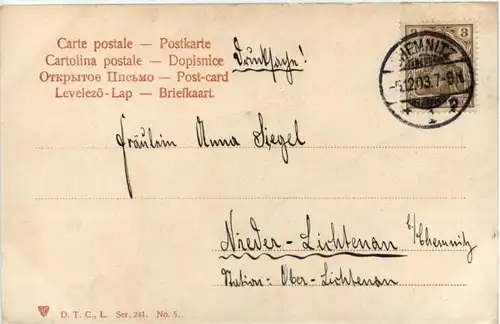 Carte postale — Postkarte
Cartolina postale — Dopisnice
Открытое Письмо — Post-card
Levelező-Lap — Briefkaart.
Drucksache!
3 3
CHEMNITZ
-5.12.03.7-8N.
* 1 P
Fräulein Anna Siegel
Nieder-Lichtenau b/Chemnitz
Station: Ober-Lichtenau
D. T. C., L. Ser. 241. No. 5.